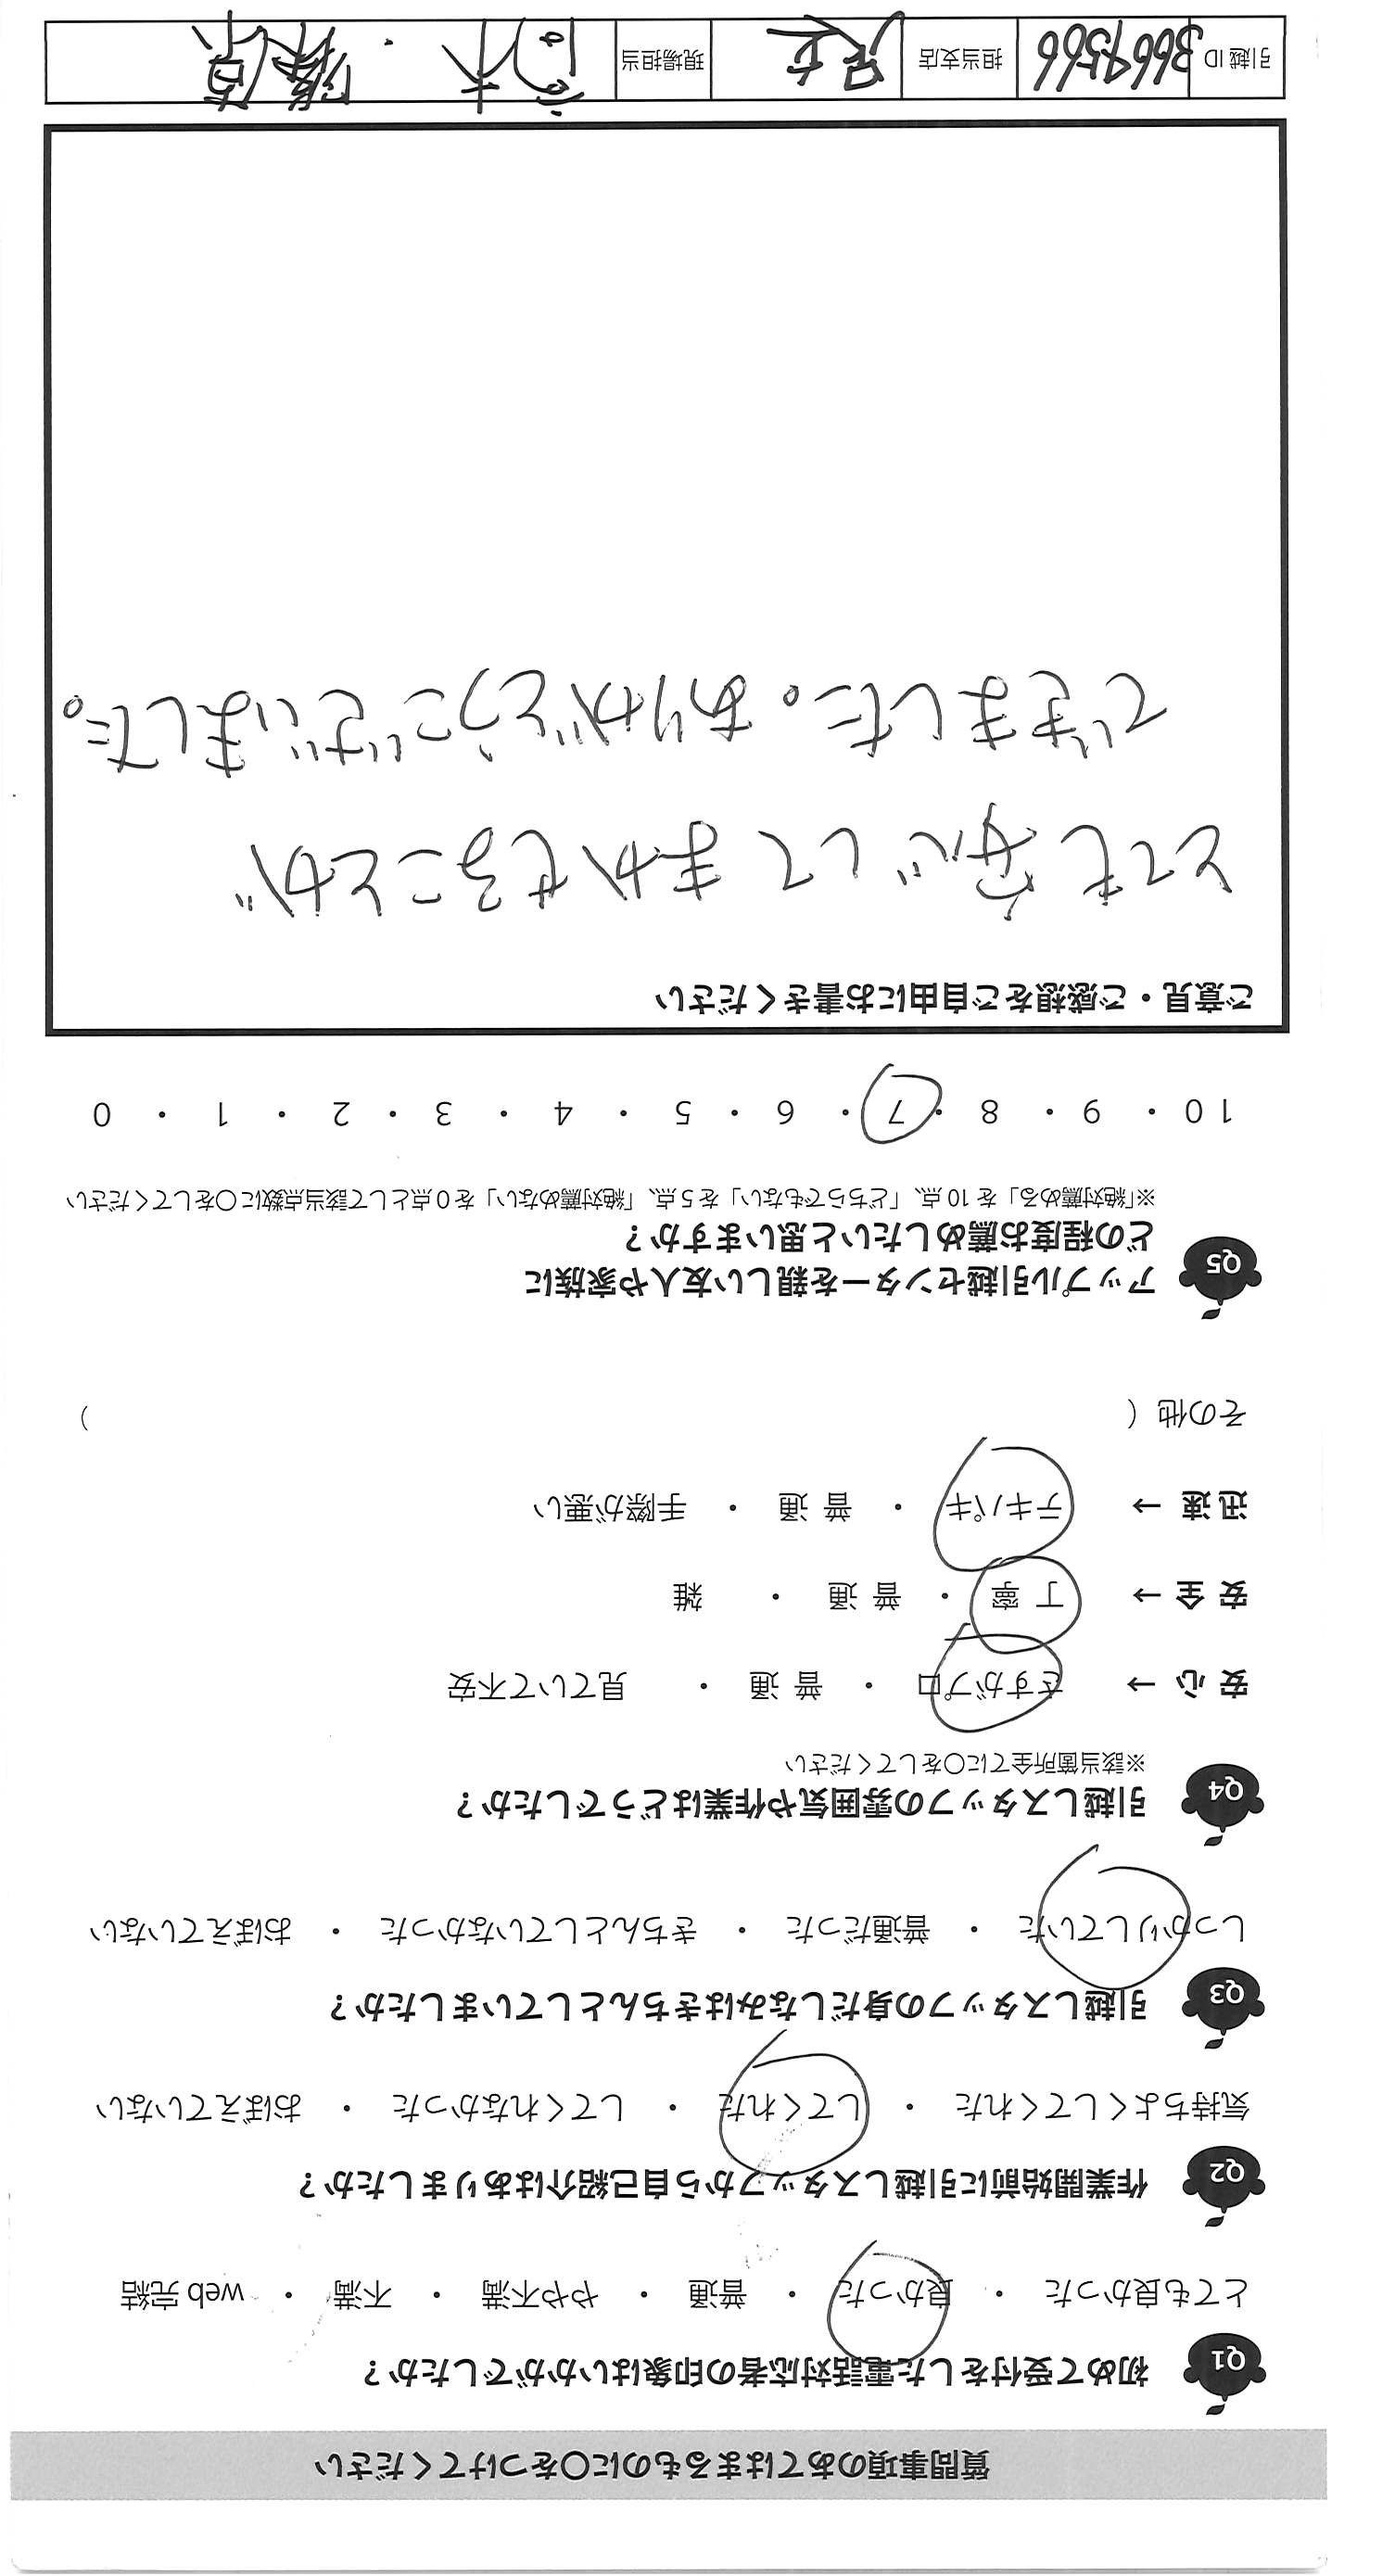 質問事項のあてはまるものに〇をつけてください
Q1 初めて受付をした電話対応者の印象はいかがでしたか？
とても良かった ・ 良かった ・ 普通 ・ やや不満 ・ 不満 ・ web 完結
Q2 作業開始前に引越しスタッフから自己紹介はありましたか？
気持ちよくしてくれた ・ してくれた ・ してくれなかった ・ おぼえていない
Q3 引越しスタッフの身だしなみはきちんとしていましたか？
しっかりしていた ・ 普通だった ・ きちんとしていなかった ・ おぼえていない
Q4 引越しスタッフの雰囲気や作業はどうでしたか？
※該当箇所全てに〇をしてください
安 心 → さすがプロ ・ 普 通 ・ 見ていて不安
安 全 → 丁 寧 ・ 普 通 ・ 雑
迅 速 → テキパキ ・ 普 通 ・ 手際が悪い
その他（ ）
Q5 アップル引越センターを親しい友人や家族に
どの程度お薦めしたいと思いますか？
※「絶対薦める」を 10 点、「どちらでもない」を 5 点、「絶対薦めない」を 0 点として該当点数に〇をしてください
10 ・ 9 ・ 8 ・ 7 ・ 6 ・ 5 ・ 4 ・ 3 ・ 2 ・ 1 ・ 0
ご意見・ご感想をご自由にお書きください
とても安心してまかせることが
できました。ありがとうございました。
引越 ID 3669566 担当支店 足立 現場担当 高木 ・ 篠原